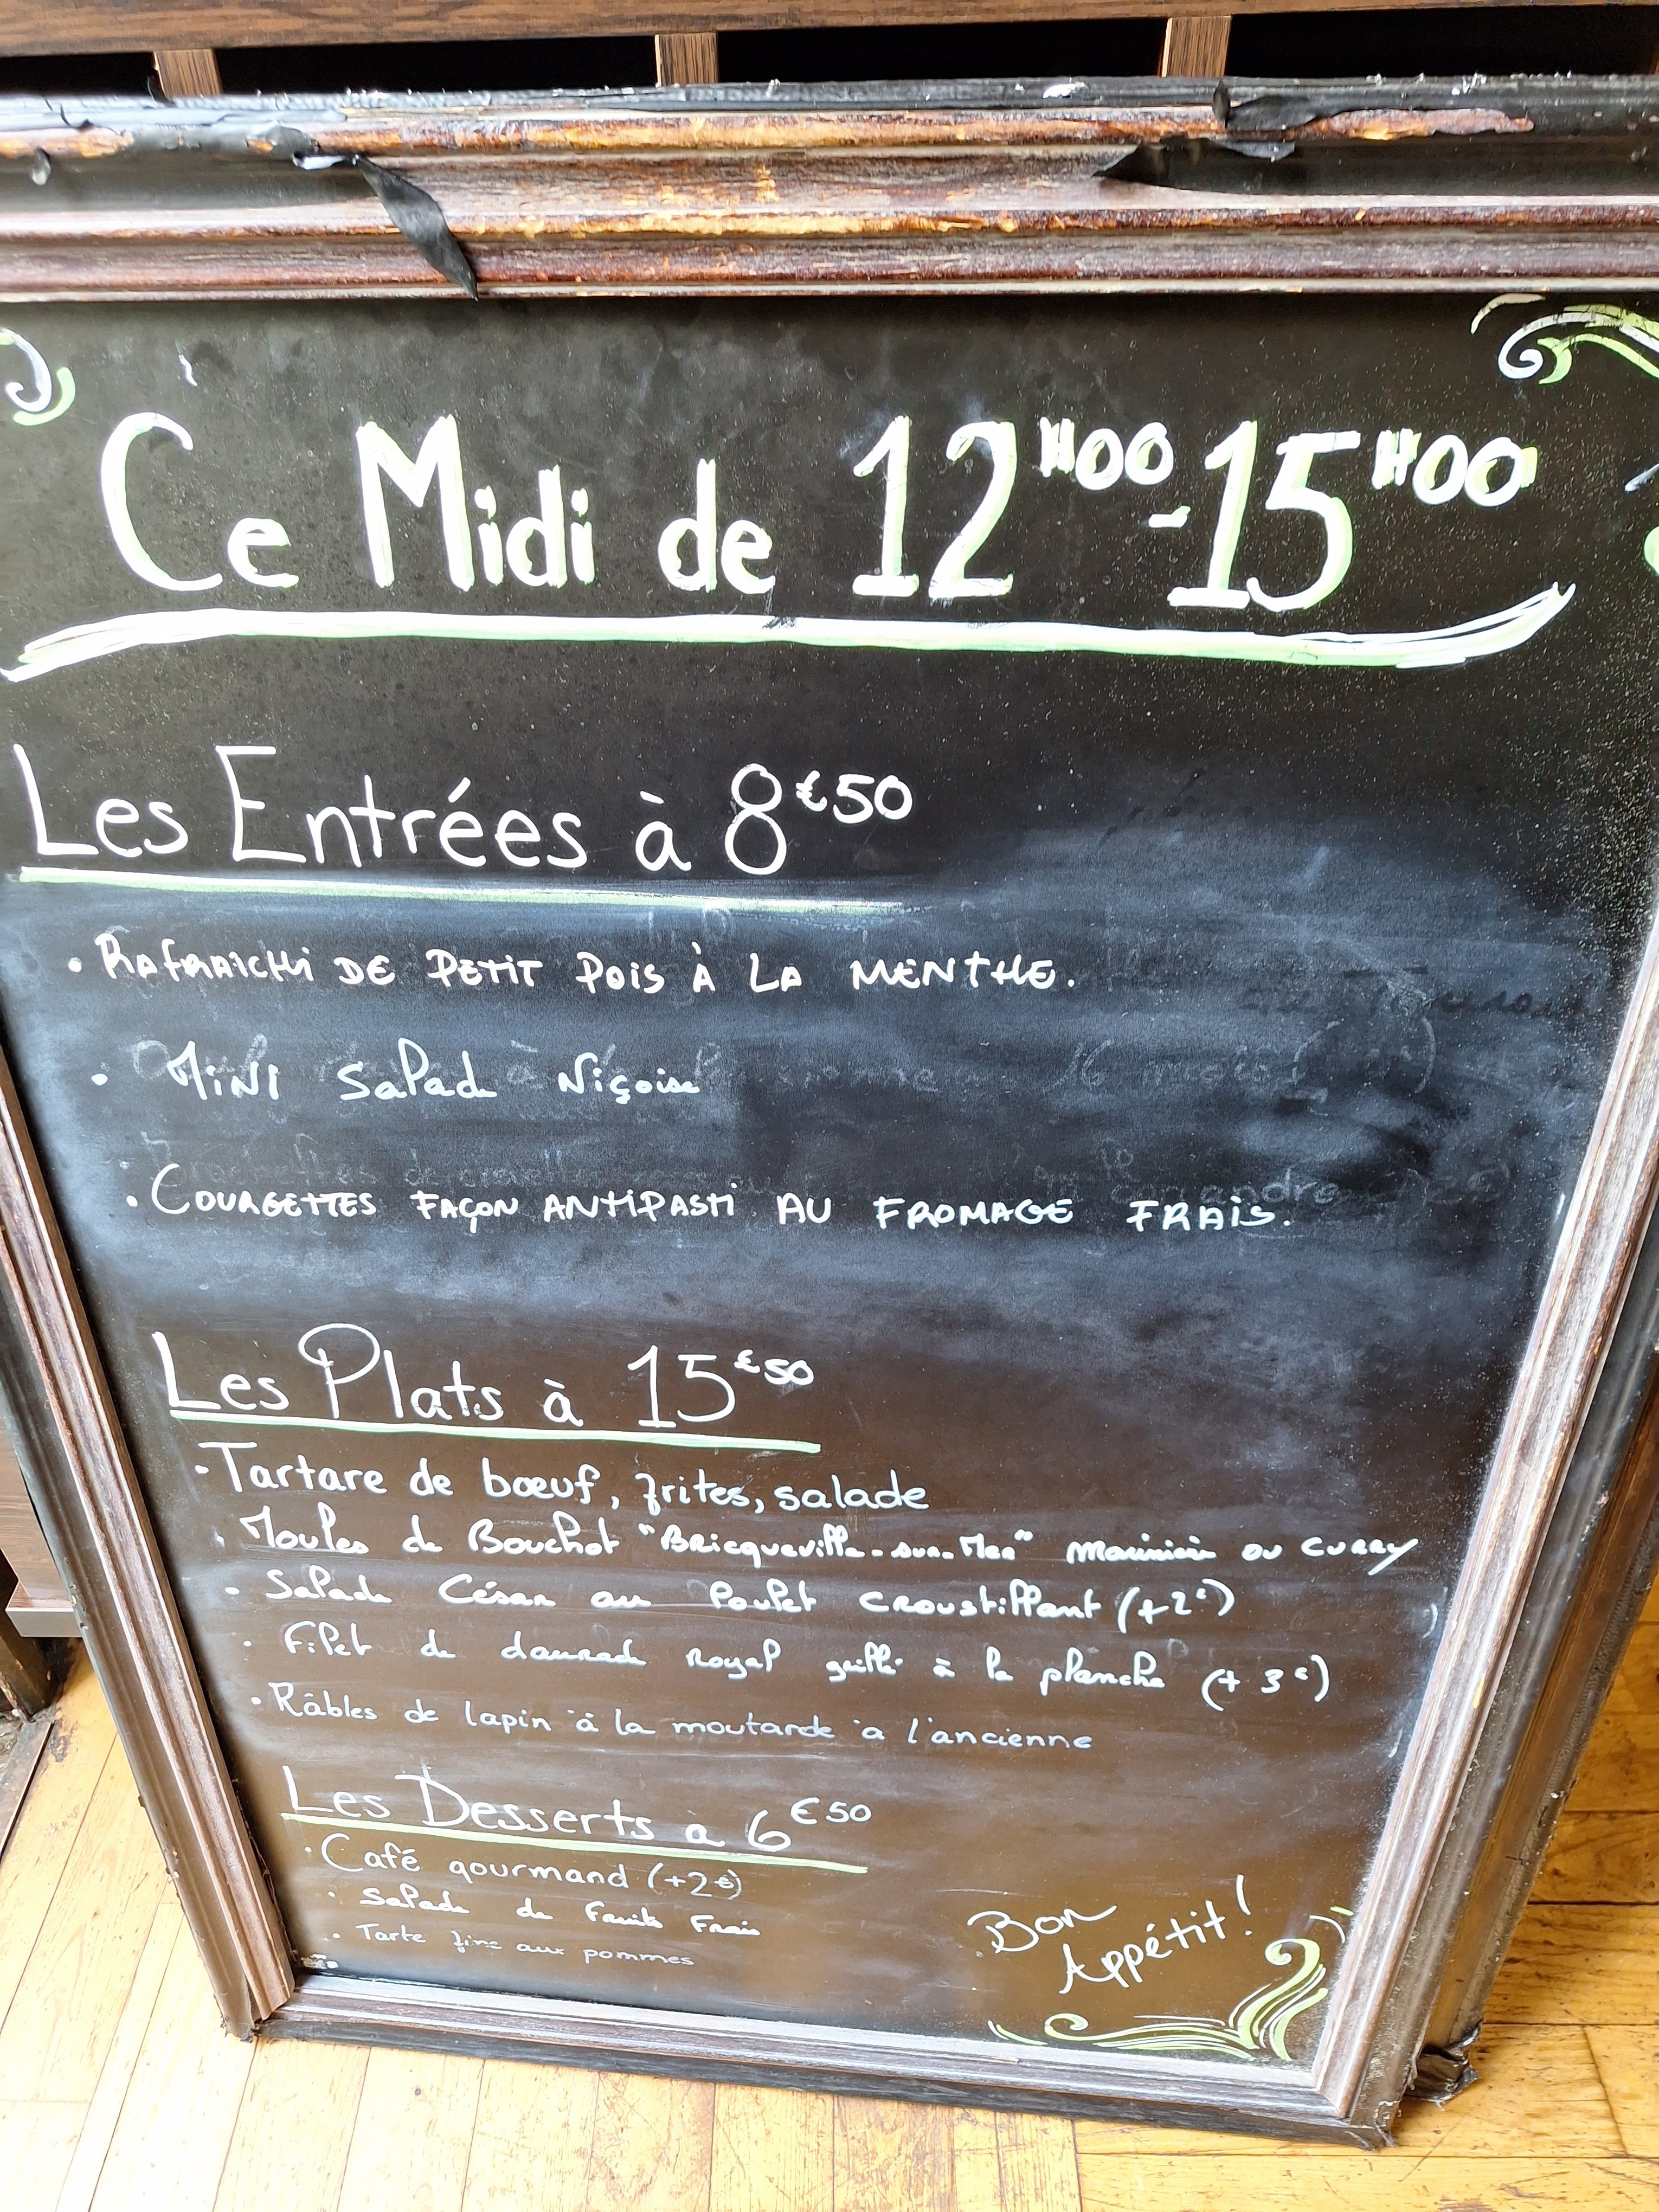 Ce Midi de 12H00-15H00
Les Entrées à 8€50
• RAFRAICHI DE PETIT POIS À LA MENTHE.
• MINI Salade Niçoise
• COURGETTES FAÇON ANTIPASTI AU FROMAGE FRAIS.
Les Plats à 15€50
• Tartare de bœuf, frites, salade
• Moules de Bouchot "Bricqueville-sur-Mer" Marinière ou CURRY
• Salade César au Poulet croustillant (+2€)
• Filet de daurade royal grillé à la plancha (+3€)
• Râbles de lapin à la moutarde à l'ancienne
Les Desserts à 6€50
• Café gourmand (+2€)
• Salade de Fruits Frais
• Tarte fine aux pommes
Bon
Appétit!